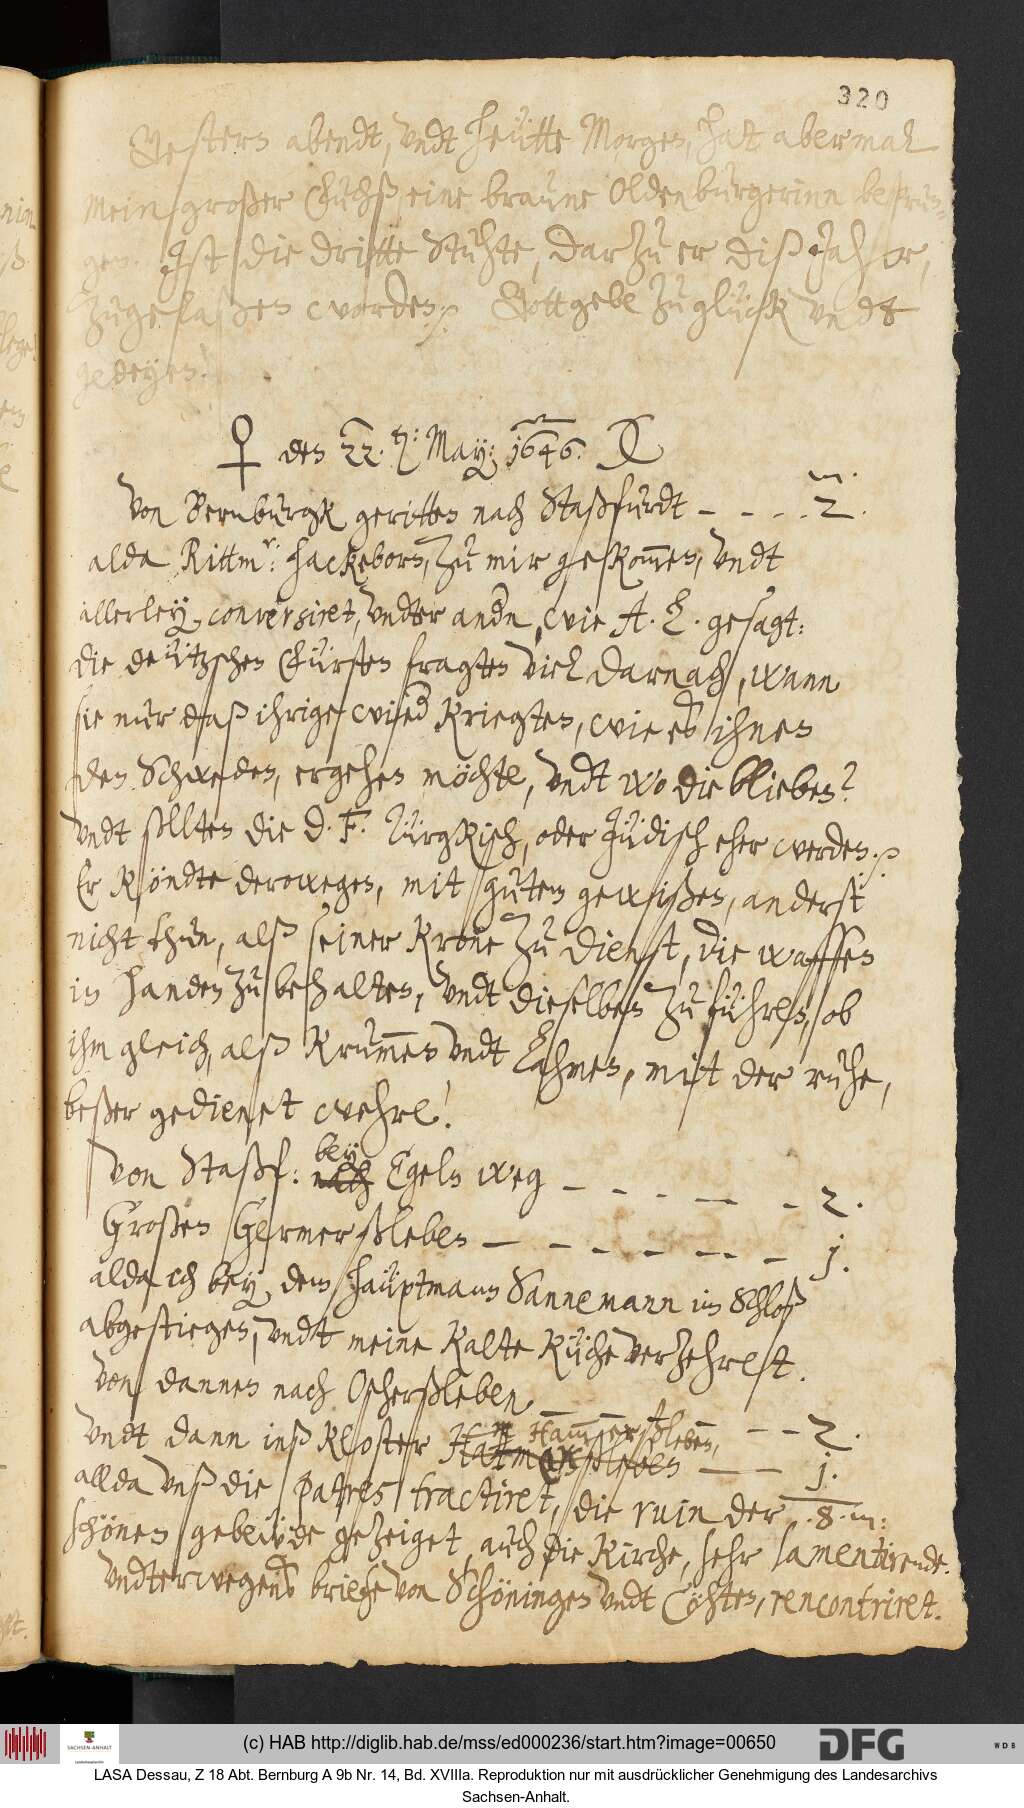 320
Gestern abendt, vndt heütte Morgen, hat abermal
mein großer Fuchß eine braune Oldenburgerinn besprun-
gen. Jst die dritte Stuhte, darzu er diß Jahr,
zugelaßen worden. Gott gebe zu glück vndt
gedeyen.
♀ den 22. May: 1646.
Von Bernburgk geritten nach Staßfurdt – – – . 2.
alda Rittmr: Hackeborn, zu mir gekommen, vndt
allerley conversiret, vndter andn, wie A. L. gesagt:
die deützschen Fürsten fragten viel darnach, wann
sie nur daß ihrige wied kriegten, wie es ihnen
den Schweden, ergehen möchte, vndt wo die blieben?
vndt sollten die D. F. Türgkisch, oder Jüdisch eher werden.
Er köndte derowegen, mit gutem gewißen, anderst
nicht thun, alß seiner Krone zu dienst, die waffen
in handen zu behalten, vndt dieselben zu führen, ob
ihm gleich, alß krummen vndt Lahmen, mit der ruhe,
beßer gedienet wehre!
Von Staßf: nach bey Egeln weg – – – – – 2.
Großen Germerßleben – – – – – – 1.
alda ich bey dem hauptmann Sannemann im Schloß
abgestiegen, vndt meine kalte küche verzehret.
Von dannen nach Oscherßleben – – – – – 2.
vndt dann inß kloster Hammerßleben, – – 1.
allda vnß die patres tractiret, die ruin der .8. m:
schönen gebeüde gezeiget, auch die Kirche, sehr lamentirende.
Vndterwegens briefe von Schöningen vndt Cöhten, rencontriret.
(c) HAB http://diglib.hab.de/mss/ed000236/start.htm?image=00650
SACHSEN-ANHALT
DFG
WDB
LASA Dessau, Z 18 Abt. Bernburg A 9b Nr. 14, Bd. XVIIIa. Reproduktion nur mit ausdrücklicher Genehmigung des Landesarchivs
Sachsen-Anhalt.